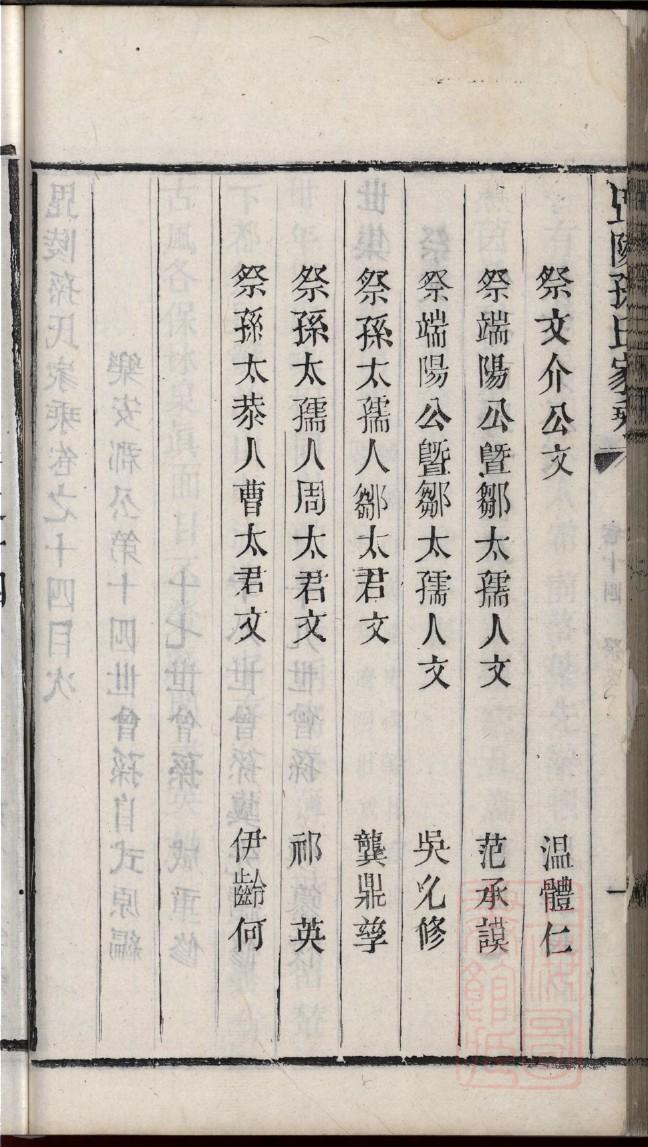 毘陵孫氏家乘
卷十四
一
祭文介公文 温體仁
祭端陽公暨鄒太孺人文 范承謨
祭端陽公暨鄒太孺人文 吳允修
祭孫太孺人鄒太君文 龔鼎孳
祭孫太孺人周太君文 祁英
祭孫太恭人曹太君文 伊齡何